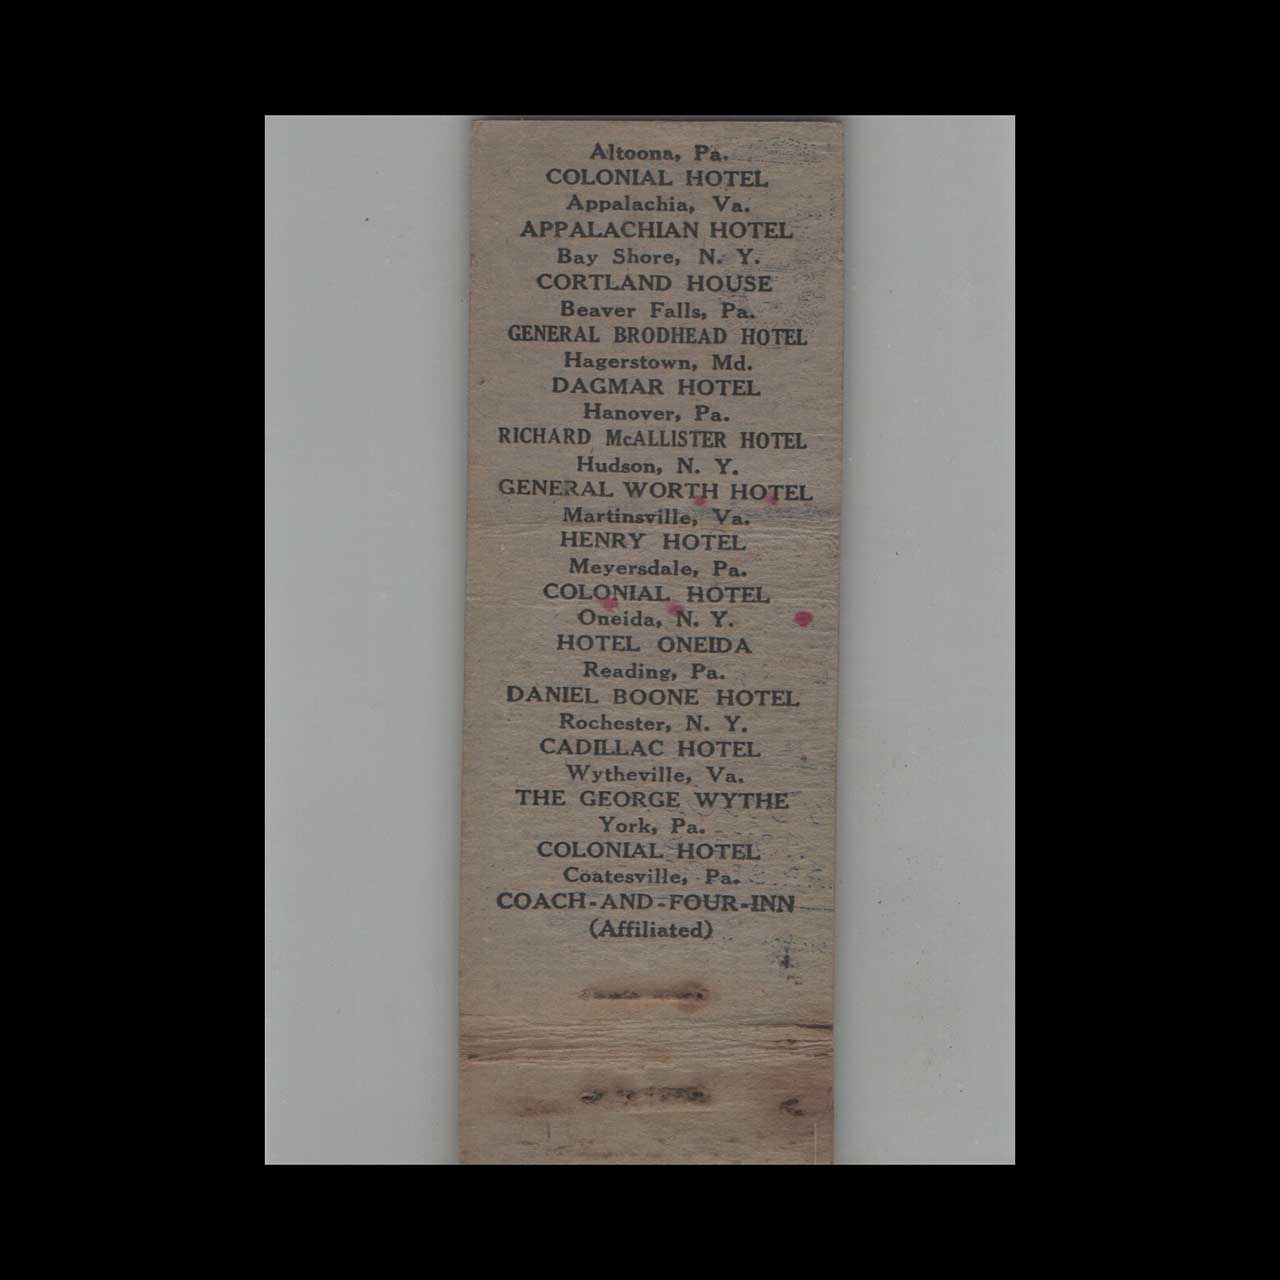 Altoona, Pa.
COLONIAL HOTEL
Appalachia, Va.
APPALACHIAN HOTEL
Bay Shore, N. Y.
CORTLAND HOUSE
Beaver Falls, Pa.
GENERAL BRODHEAD HOTEL
Hagerstown, Md.
DAGMAR HOTEL
Hanover, Pa.
RICHARD McALLISTER HOTEL
Hudson, N. Y.
GENERAL WORTH HOTEL
Martinsville, Va.
HENRY HOTEL
Meyersdale, Pa.
COLONIAL HOTEL
Oneida, N. Y.
HOTEL ONEIDA
Reading, Pa.
DANIEL BOONE HOTEL
Rochester, N. Y.
CADILLAC HOTEL
Wytheville, Va.
THE GEORGE WYTHE
York, Pa.
COLONIAL HOTEL
Coatesville, Pa.
COACH-AND-FOUR-INN
(Affiliated)